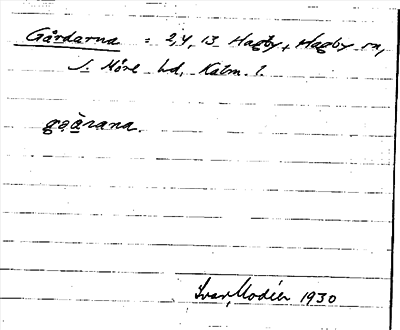 Gårdarna = 2,4, 13 Hagby, Hagby sn,
S. Möre hd, Kalm. l.
gɷ̀ȧrana.
Ivar Modéer 1930